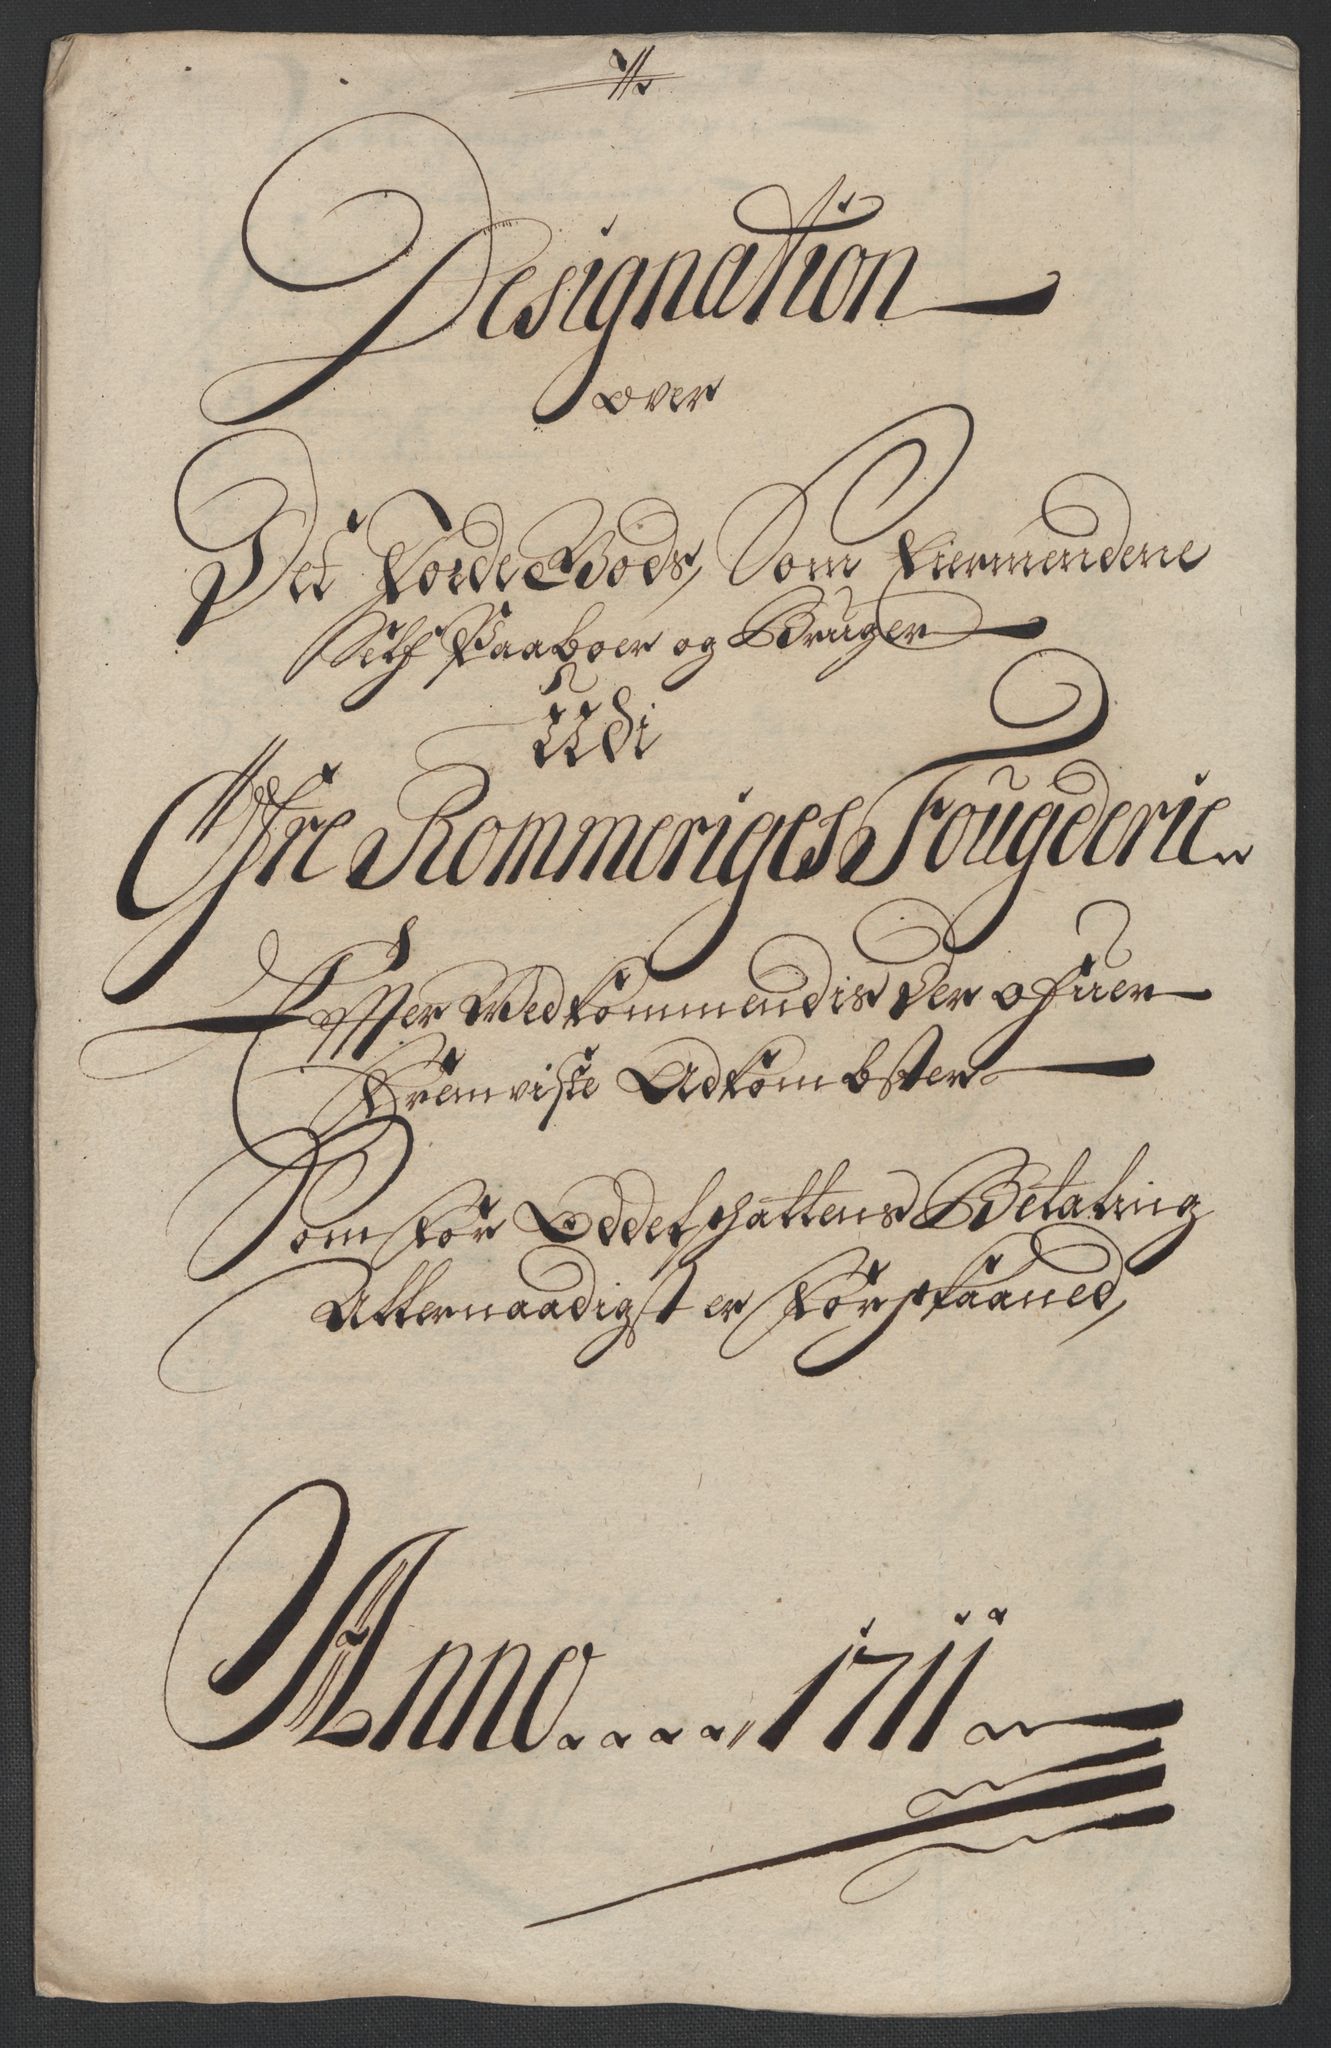 Designation
over
Det Jorde Gods, Som Eiermendene
Self Paaboer og Bruger
Udi
Øfre Rommeriges Fougderie
Effter Vedkommendis Der ofuer
Fremviste Adkombster
Som for Oddelschattens Betaling
Allernaadigst er Forskaaned,
Anno 1711